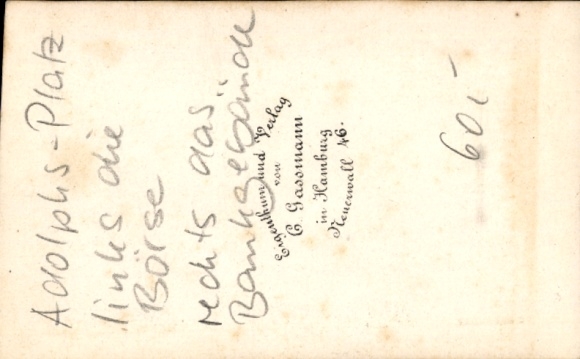 Adolphs-Platz
links die
Börse
rechts das
Bankgebäude
Eigenthum und Verlag
von
C. Gassmann
in Hamburg
Neuerwall 46.
60,-